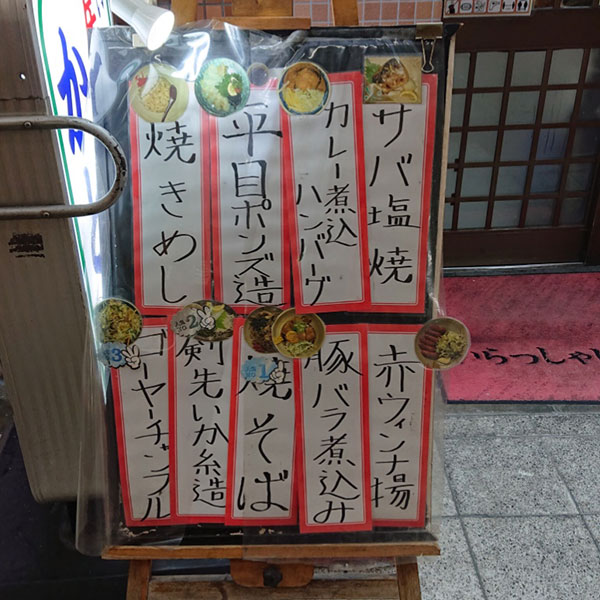 サバ塩焼
カレー煮込
ハンバーグ
平目ポンズ造
焼きめし
赤ウィンナ揚
豚バラ煮込み
焼そば
剣先いか糸造
ゴーヤーチャンプル
1
2
3
いらっしゃい